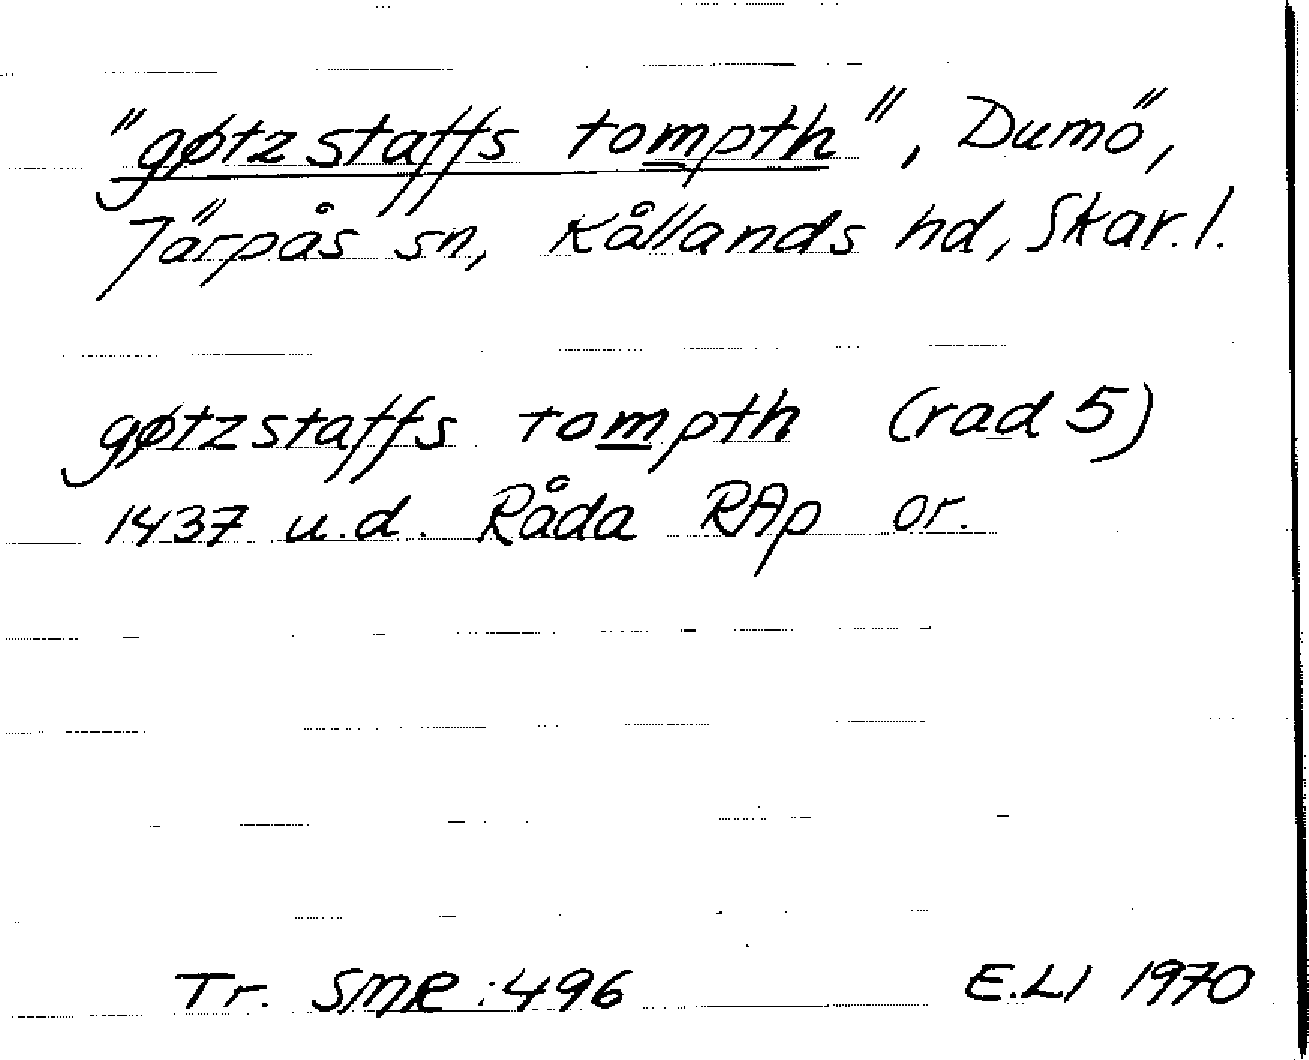 "gøtzstaffs tompth", Dumö,
Järpås sn, Kållands hd, Skar. l.
gøtzstaffs tompth (rad 5)
1437 u.d. Råda RAp or.
Tr. SMR:496 E.Ll 1970